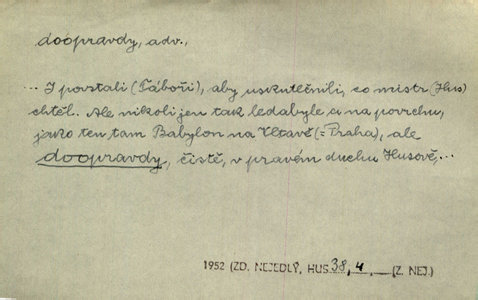 doopravdy, adv.,
... I povstali (Táboři), aby uskutečnili, co mistr (Hus)
chtěl. Ale nikoli jen tak ledabyle a na povrchu,
jako ten tam Babylon na Vltavě (= Praha), ale
doopravdy, čistě, v pravém duchu Husově,...
1952 (ZD. NEJEDLÝ, HUS 38, 4, — (Z. NEJ.)